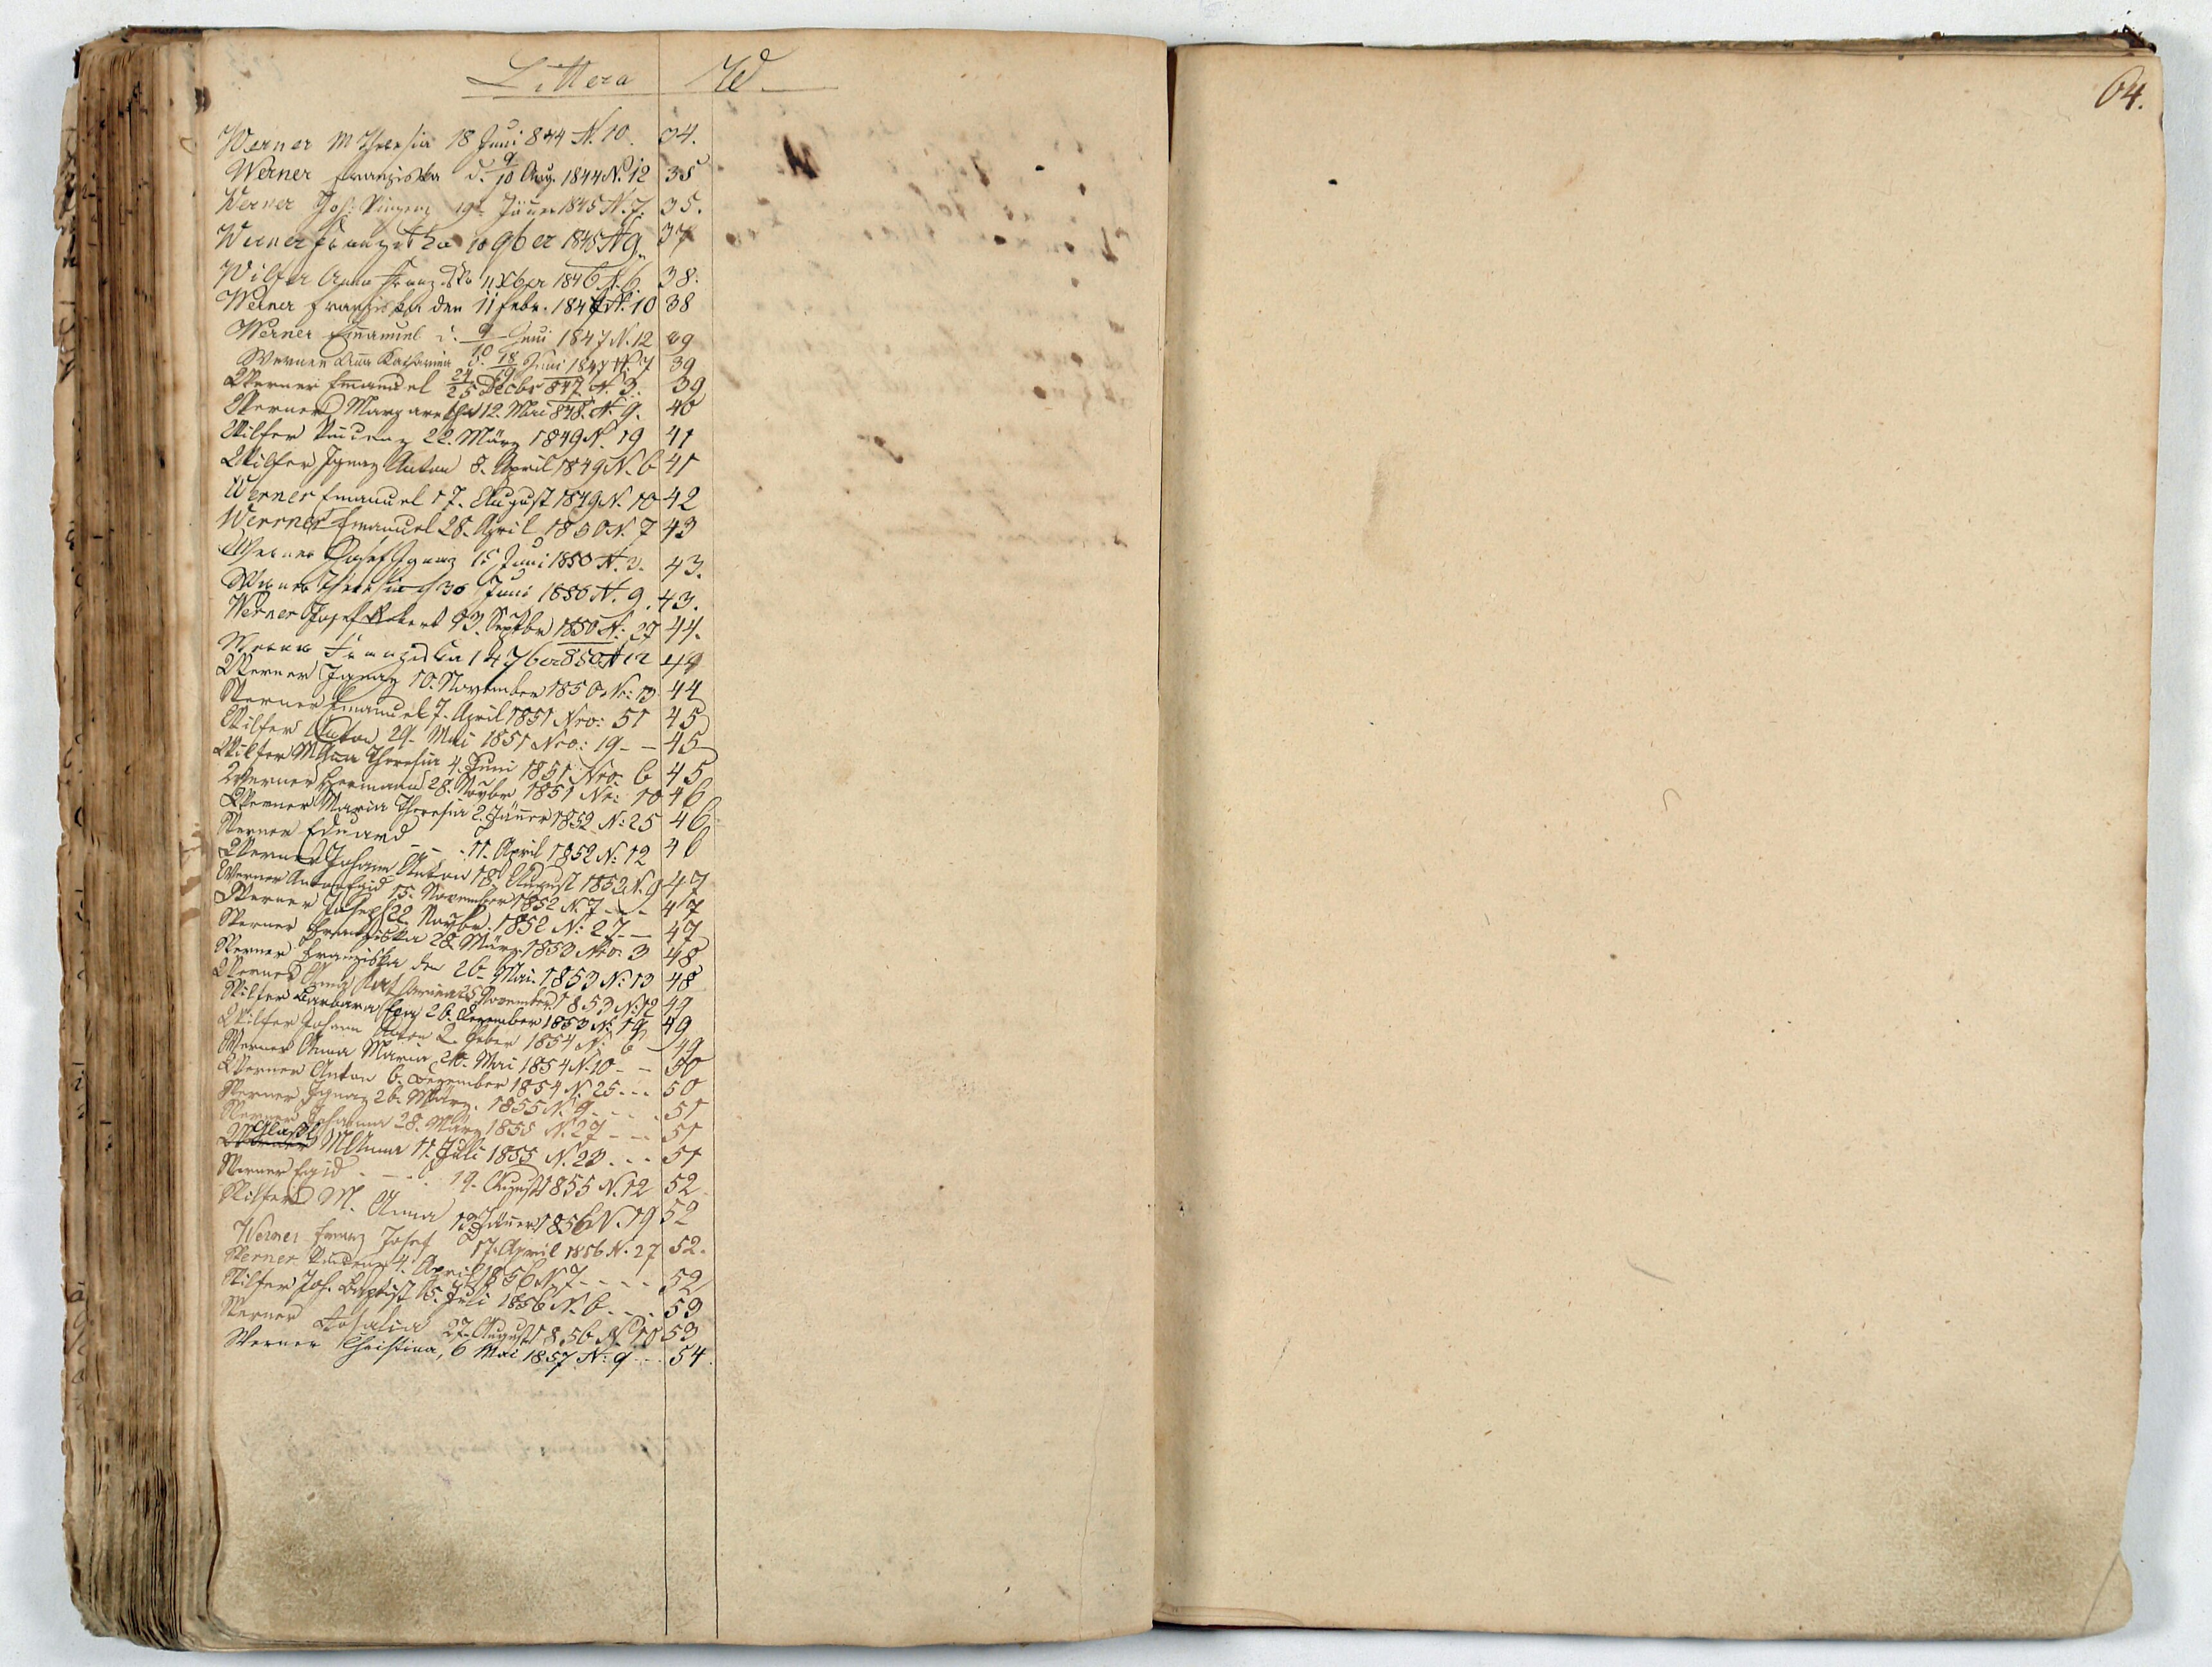 Littera W.
Werner M Theresia 18 Juni 844 N. 10. 34.
Werner Franziska d. 9/10 Aug. 1844 N. 12 35
Werner Joh. Vinzenz 19 Jäner 1845 N. 7. 35.
Werner Franziska 10 9ber 1845 N 9. 37
Wilfer Anna Franziska 11 Xber 1846 N. 6. 38.
Werner Franziska den 11 Febr. 1847 N. 10 38
Werner Emanuel d. 9/10 Juni 1847 N. 12 39
Werner Ana Katharina d. 18/19 Juni 1847 N. 7 39
Werner Emanuel 24/25 Decbr 847 N. 3. 39
Werner Margaretha 12. Mai 848. N. 9. 40
Wilfer Vincenz 22. März 1849 N. 19 41
Wilfer Ignaz Anton 8. April 1849 N. 6 41
Werner Emanuel 17. August 1849 N. 10 42
Werner Emanuel 28. April 1850 N. 7 43
Werner Josef Ignaz 15 Juni 1850 N. 43.
Werner Theresia 30 Juni 1850 N. 9. 43.
Werner Josef 13. Septbr 1850 N: 27 44.
Werner Franziska 14 7ber 850 N 12 44
Werner Ignaz 10. November 1850 Nr: 13 44
Werner Emanuel 7. April 1851 Nro: 51 45
Wilfer Anton 29. Mai 1851 Nro: 19 - - 45
Wilfer M Theresia 4. Juni 1851. Nro. 6 45
Werner Hermann 28. Novbr 1851 Nr: 10 46
Werner Maria Theresia 2. Jäner 1852 N: 25 46
Werner Eduard - - - 11. April 1852 N: 12 46
Werner Johann Anton 18. August 1852 N. 9 47
Werner Anton Egid 15. November 1852 N. 7 - - - 47
Werner Joseph 22 Novbr. 1852 N: 27 - - 47
Werner Franziska 28. März 1853 Nro: 3 48
Werner Franziska den 26. Mai 1853 N: 13 48
Werner Anna Katharina 25 November 1853 N: 12 49
Wilfer Barbara Eva 26. Dezember 1853 N: 19 49
Wilfer Johann Anton 2. Feber 1854 N: 6 - 49
Werner Anna Maria 26. Mai 1854 N. 10 - - 50
Werner Anton 6. Dezember 1854 N 25 - - - 50
Werner Ignaz 26. März. 1855 N. 9 - - - . 51
Werner Johanna 28. März 1855 N. 27 - - - 51
Glaßl M Anna 11. Juli 1855 N. 23 - - - 51
Werner Egid - - - 19. August 1855 N. 12 52
Wilfer M. Anna 13 Jäner 1856 N. 19 52
Werner Franz Josef 17. April 1856 N. 27 52.
Werner Vincenz 4. April 1856 N 7 - - - - 52
Wilfer Joh. Baptist 5. Juli 1856 N. 6 - - - 53
Werner Rosalia 27. August 1856 N. 10 53
Werner Christina, 6 Mai 1857 N: 9 - - - 54.
64.